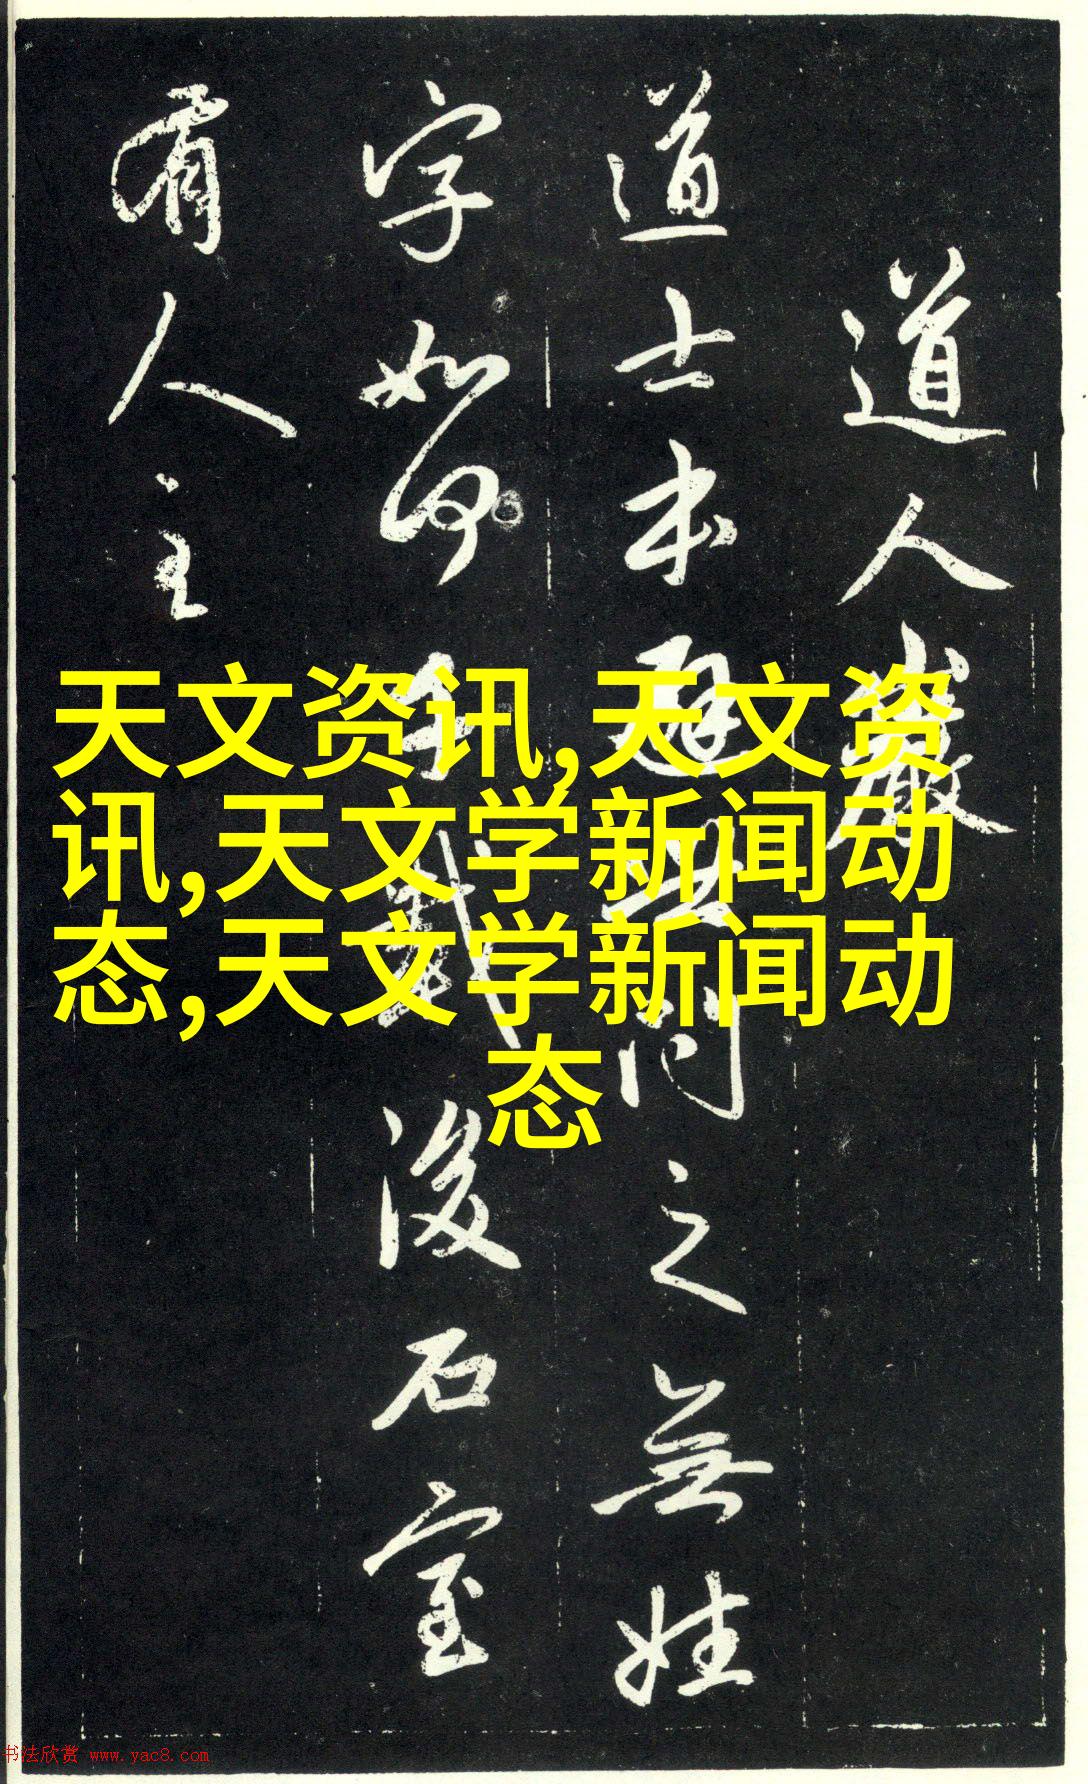 道人巖
道士本避世問之無姓
字如何千載後石室
有人主
天文资讯,天文资
讯,天文学新闻动
态,天文学新闻动
态
书法欣赏 www.yac8.com